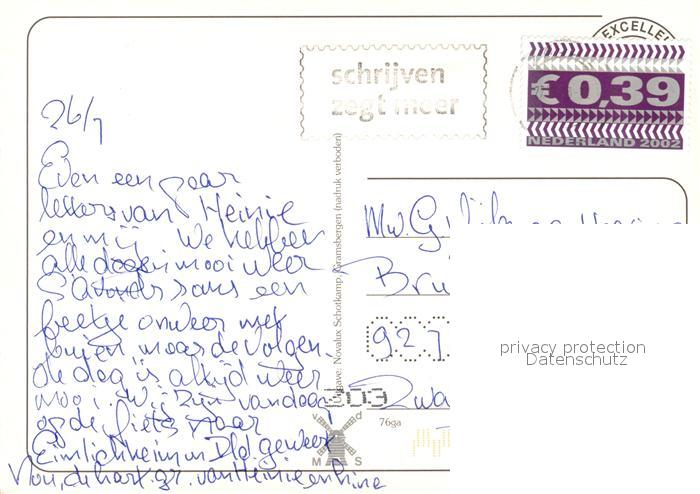 EXCELLE
schrijven
zegt meer
€ 0,39
NEDERLAND 2002
26/7
Even een paar
letters van Heinie
en mij We hebben
alle dagen mooi weer
S'Avonds soms een
beetje onweer met
buien, maar de volgen-
de dag is altijd weer
mooi. Wij zijn vandaag
op de fiets naar
Emlichheim in Dld. geweest
Nou, de hart. gr. van Heinie en Rine
Mw. G.
Bru
927
Zwa
privacy protection
Datenschutz
Novalux Schotkamp, Gramsbergen (nadruk verboden)
303
76ga
M S